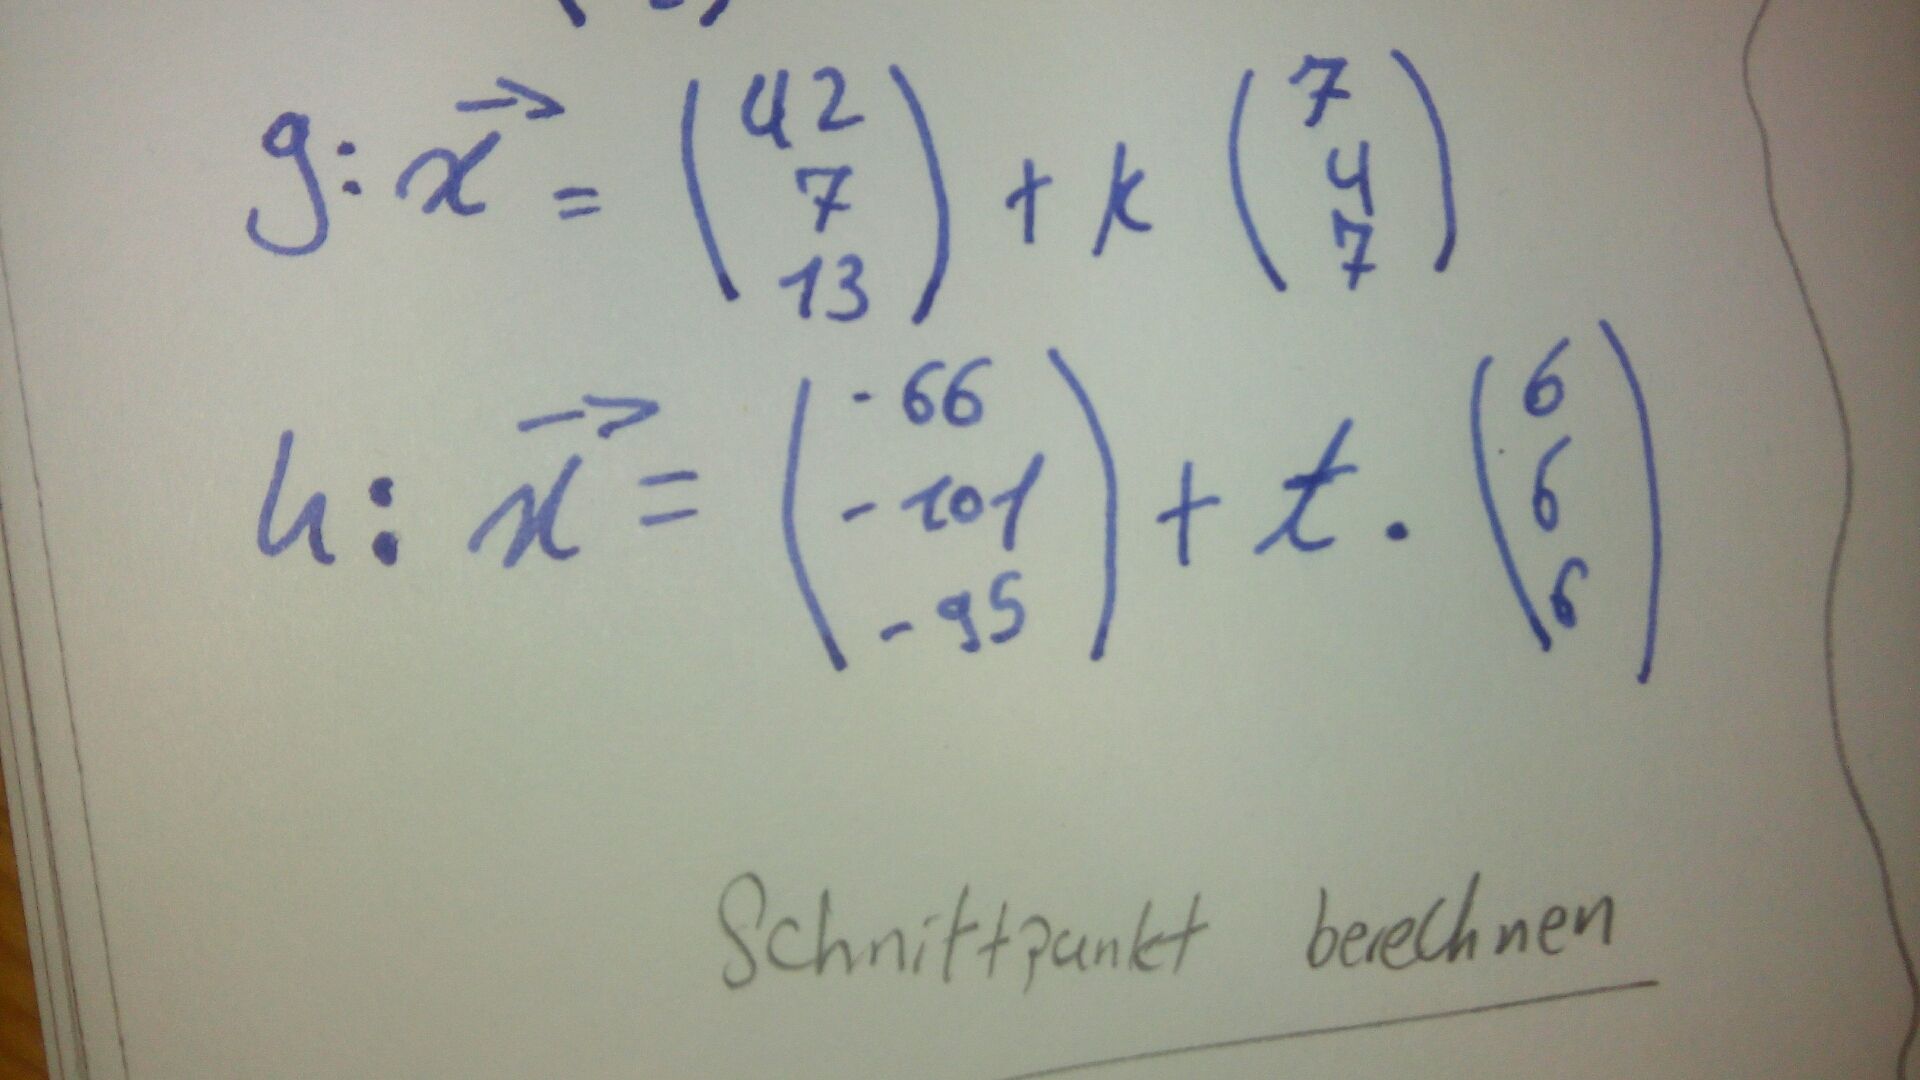 g: x⃗ = (42 7 13) + k (7 4 7)
h: x⃗ = (-66 -101 -95) + t · (6 6 6)
Schnittpunkt berechnen